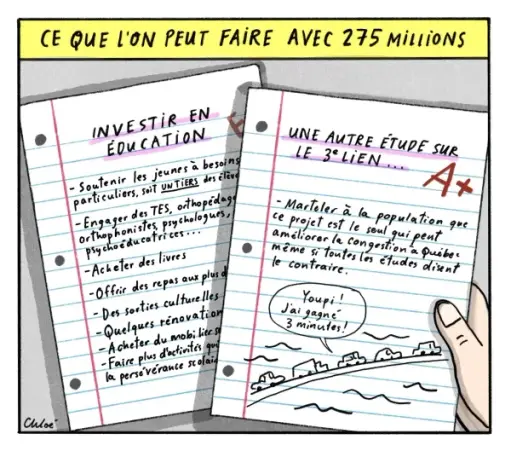 CE QUE L'ON PEUT FAIRE AVEC 275 MILLIONS
INVESTIR EN
ÉDUCATION
- Soutenir les jeunes à besoins
particuliers, soit UN TIERS des élève
- Engager des TES, orthopédag
orthophonistes, psychologues,
psychoéducatrices...
- Acheter des livres
- Offrir des repas aux plus d
- Des sorties culturelles
- Quelques rénovation
- Acheter du mobilier s
- Faire plus d'activités qu
la persévérance scolai
UNE AUTRE ÉTUDE SUR
LE 3e LIEN...
A+
- Marteler à la population que
ce projet est le seul qui peut
améliorer la congestion à Québec
même si toutes les études disent
le contraire.
Youpi!
J'ai gagné
3 minutes!
Chloé